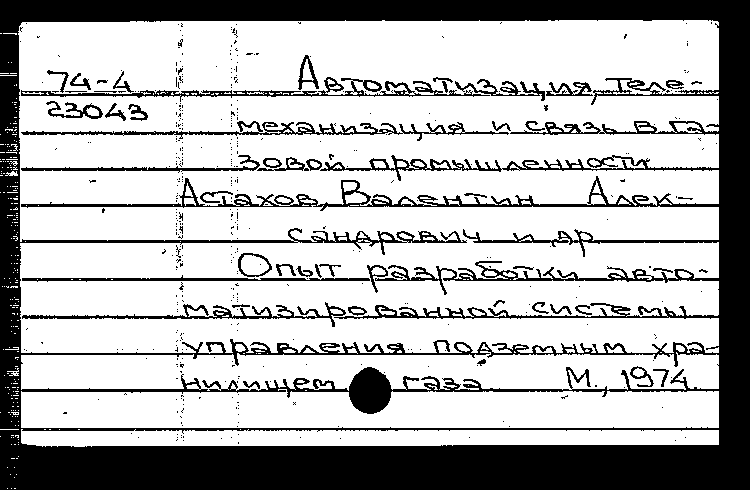 74-4 Автоматизация, теле-
23043
механизация и связь в га-
зовой промышленности
Астахов, Валентин Алек-
сандрович и др.
Опыт разработки авто-
матизированной системы
управления подземным хра-
нилищем газа. М., 1974.